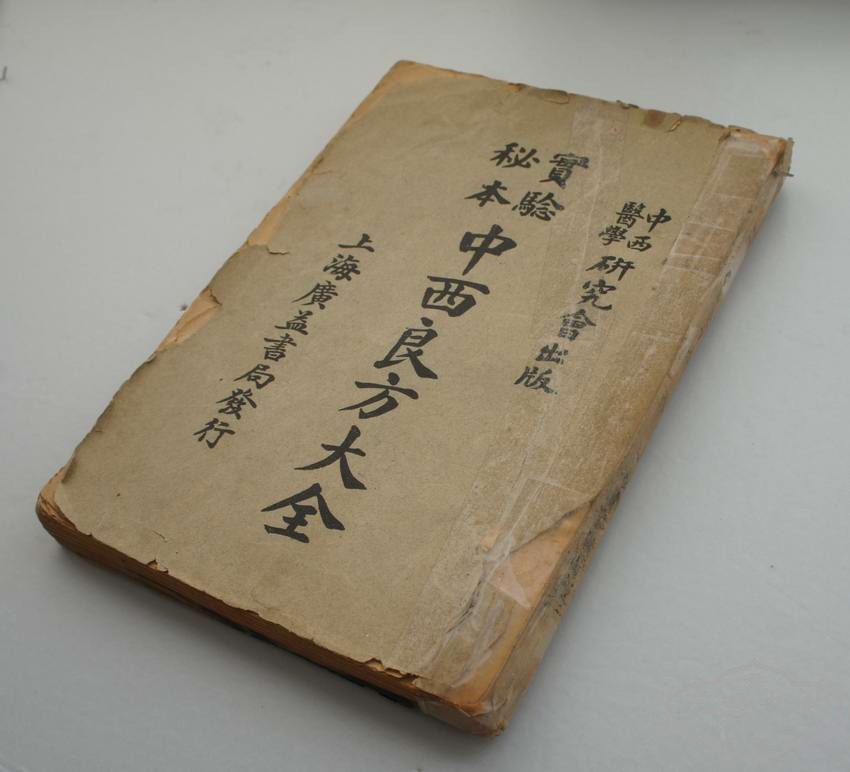 中西醫學研究會出版
實驗秘本中西良方大全
上海廣益書局發行